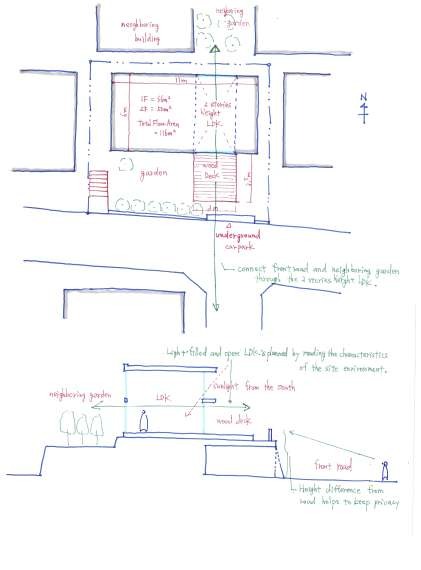 neighboring
building
neighboring
garden
11m
N
1F = 56m²
2F =
Total Floor Area
= 116m²
2 stories
height
LDK
wood
Deck
garden
4m
underground
carpark
connect front road and neighboring garden
through the 2 stories height LDK.
Light-filled and open LDK is planned by reading the characteristics
of the site environment.
neighboring garden
LDK
sunlight from the south
wood desk
front road
Height difference from
road helps to keep privacy